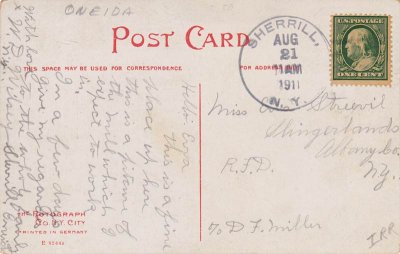 ONEIDA
POST CARD
SPACE MAY BE USED FOR CORRESPONDENCE
FOR ADDRESS
SHERRILL,
AUG
21
11 AM
1911
N.Y.
U.S. POSTAGE
ONE CENT
Hello Eva
This is a fine
place up here
this is a picture of
the mill which I
expect to work
in.
in a few days
give my regards
to the whole family
with love
Miss Streevil
Slingerlands
Albany Co.
N.y.
R.F.D.
c/o D F Miller
IRR
THE ROTOGRAPH
CO., N.Y. CITY
PRINTED IN GERMANY